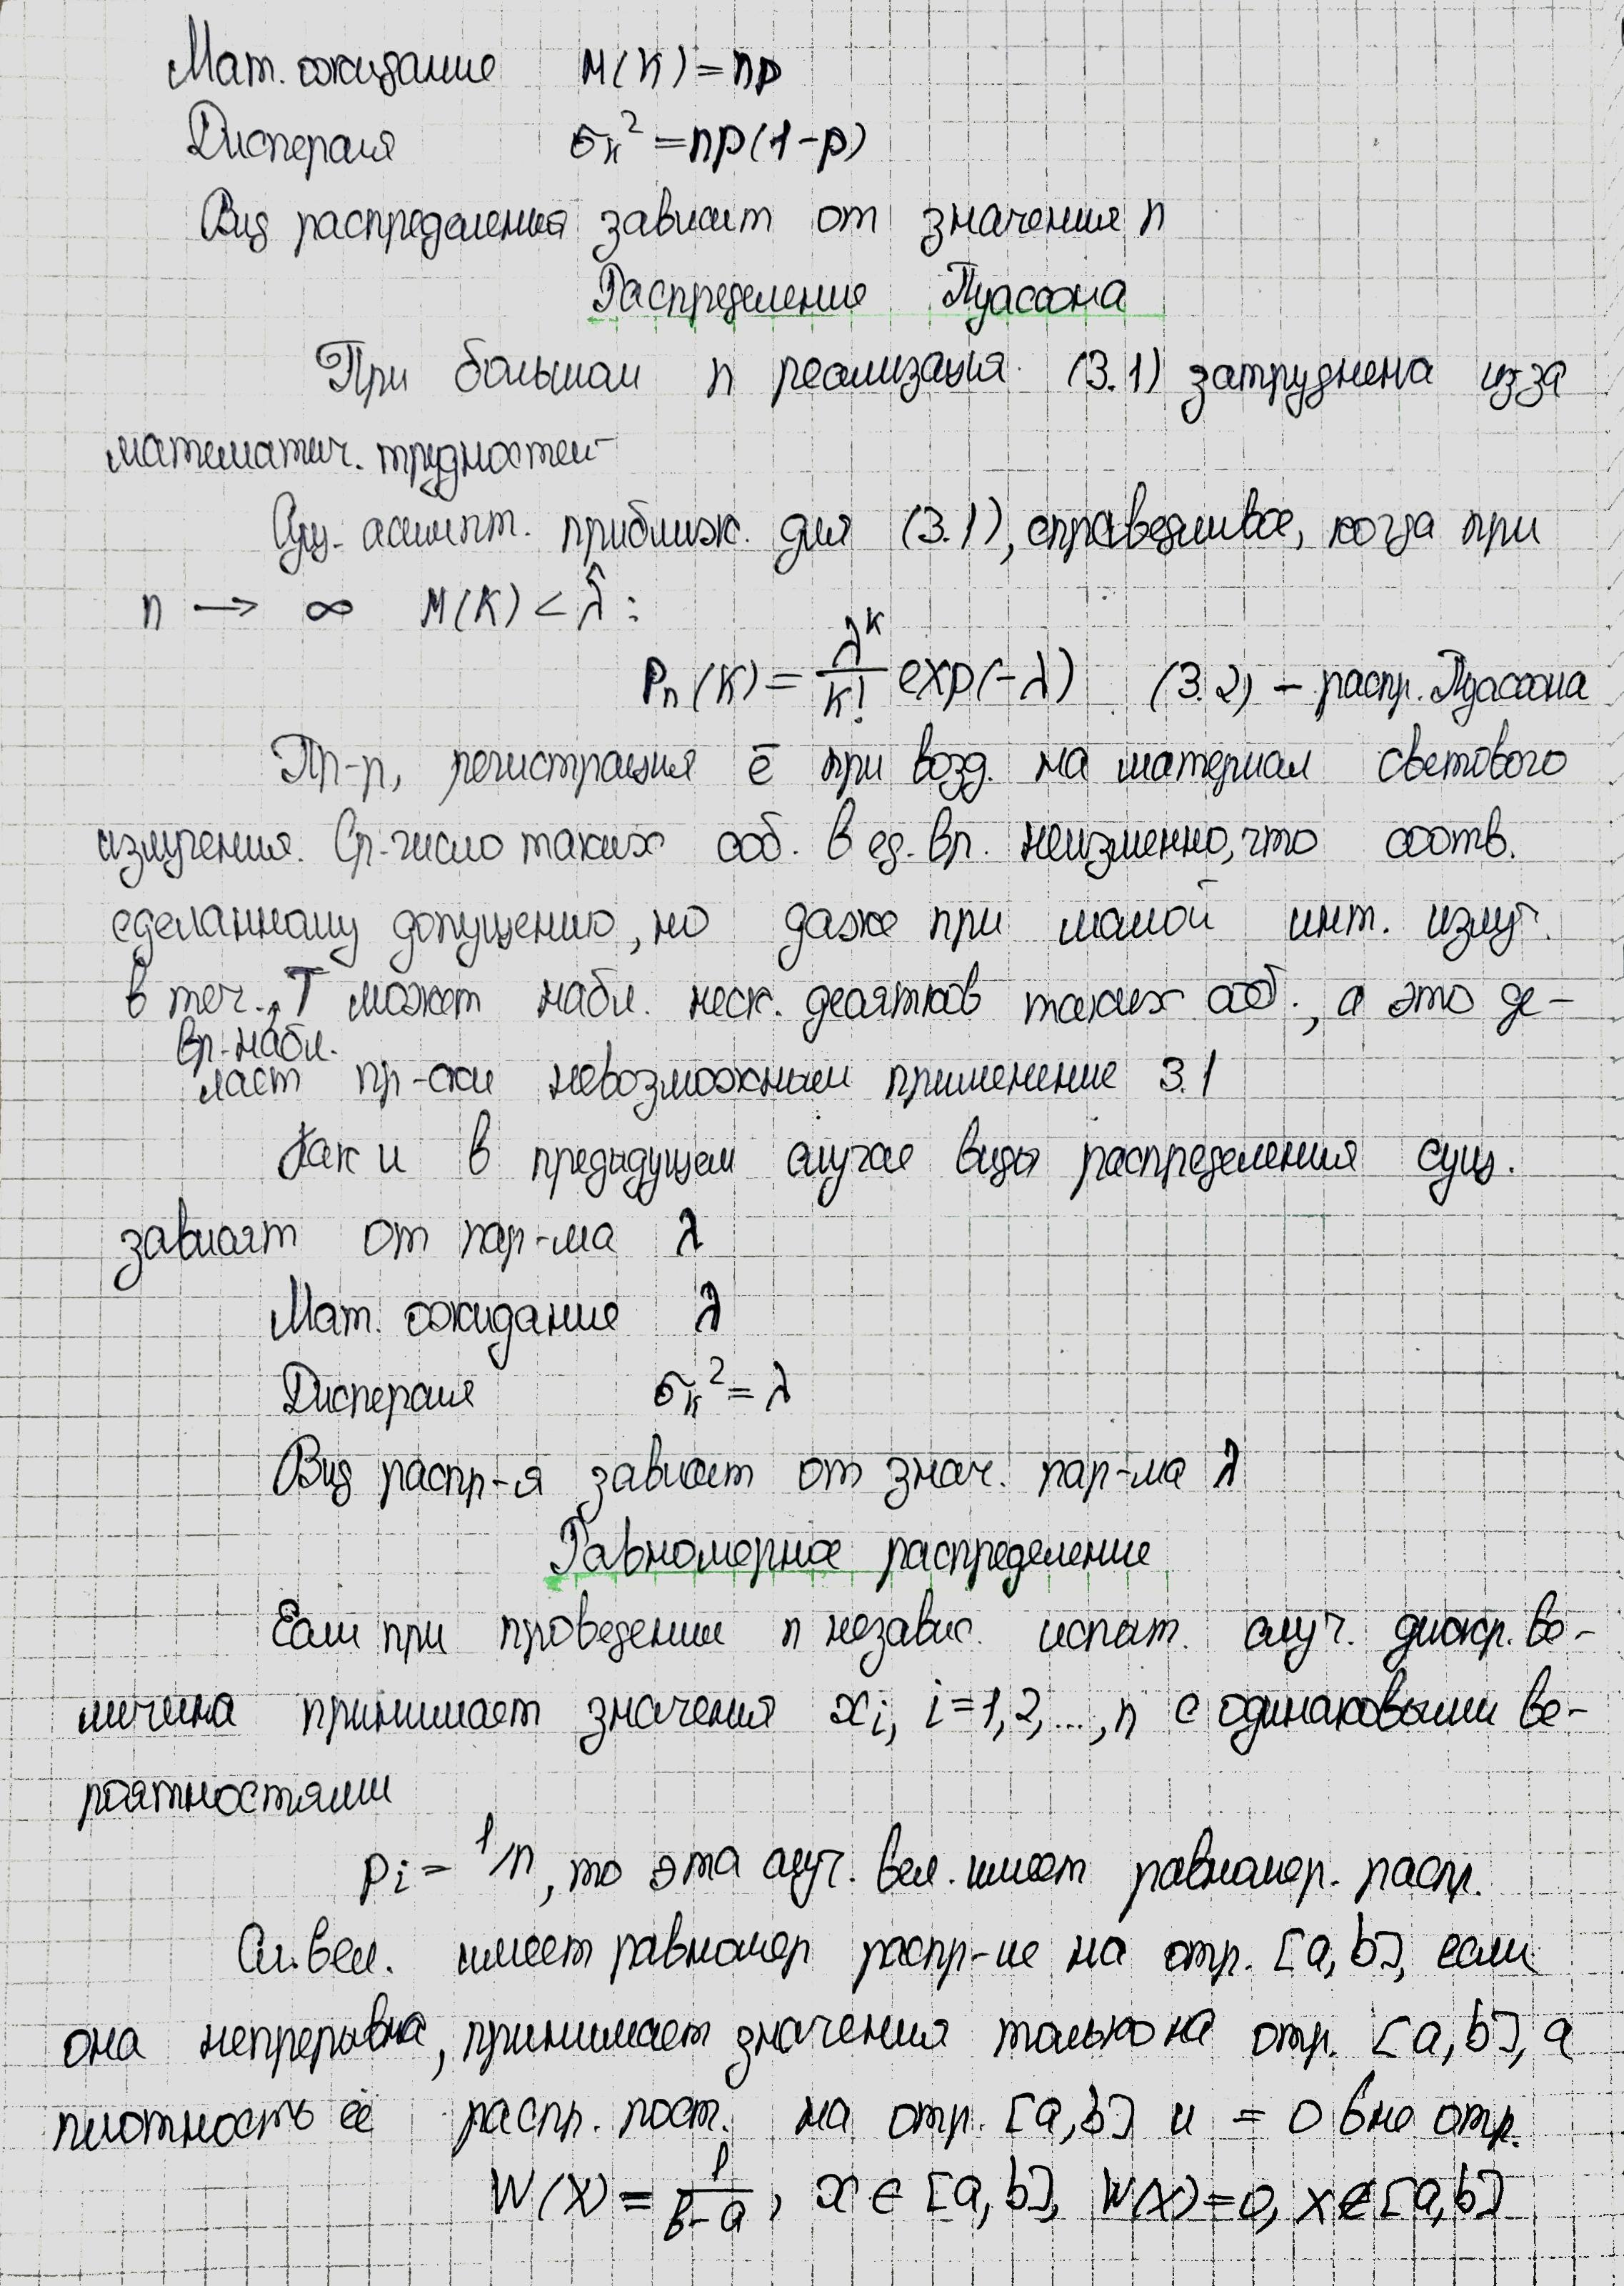 Мат. ожидание M(K)=np
Дисперсия σₖ²=np(1-p)
Вид распределения зависит от значения n
Распределение Пуассона
При большом n реализация (3.1) затруднена из за
математич. трудностей
Сущ. асимпт. приближ. для (3.1), справедливое, когда при
n → ∞ M(K) < λ̂ :
Pₙ(K) = λᴷ/K! exp(-λ) (3.2) – распр. Пуассона
Пр-р, регистрация ē при возд. на материал светового
излучения. Ср. число таких соб. в ед. вр. неизменно, что соотв.
сделанному допущению, но даже при малой инт. излуч.
в теч. T может набл. неск. десятков таких соб., а это де-
вр. набл.
лает пр-ски невозможным применение 3.1
Как и в предыдущем случае виды распределения сущ.
зависят от пар-ма λ
Мат. ожидание λ
Дисперсия σₖ²= λ
Вид распр-я зависит от знач. пар-ма λ
Равномерное распределение
Если при проведении n независ. испыт. случ. дискр. ве-
личина принимает значения xᵢ, i=1,2,...,n с одинаковыми ве-
роятностями
pᵢ= 1/n, то эта случ. вел. имеет равномер. распр.
Сл. вел. имеет равномер распр-ие на отр. [a,b], если
она непрерывна, принимает значения только на отр. [a,b], а
плотность её распр. пост. на отр. [a,b] и = 0 вне отр.
W(X)= 1/b-a, x∈[a,b], W(X)=0, x∉[a,b]